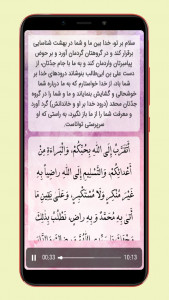 سلام بر تو، خدا بین ما و شما در بهشت شناسایی
برقرار کند و در گروهتان گرد آورد و بر حوض
پیامبرتان واردمان کند و به ما با جام جدّتان، از
دست علی بن ابی‌طالب بنوشاند درودهای خدا بر
شما باد، از خدا خواستارم که به ما درباره شما
خوشحالی و گشایش بنمایاند و ما و شما را در گروه
جدّتان محمّد (درود خدا بر او و خاندانش) گرد آورد
و معرفت شما را از ما باز نگیرد، به راستی که او
سرپرستی تواناست.
أَتَقَرَّبُ إِلَى اللّٰهِ بِحُبِّكُمْ، وَالْبَراءَةِ مِنْ
أَعْدائِكُمْ، وَالتَّسْلِيمِ إِلَى اللّٰهِ راضِياً بِهِ
غَيْرَ مُنْكِرٍ وَلَا مُسْتَكْبِرٍ، وَعَلىٰ يَقِينِ مَا
أَتىٰ بِهِ مُحَمَّدٌ وَبِهِ راضٍ، نَطْلُبُ بِذٰلِكَ
00:33
10:13